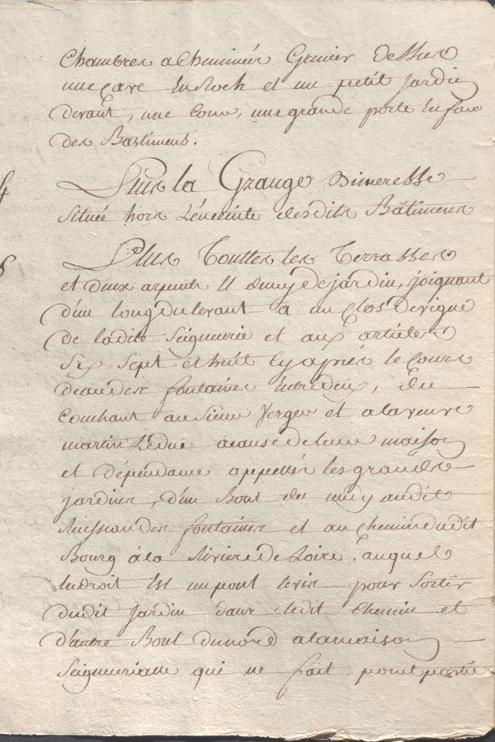 Chambres a Cheminées Grenier dessus
une Cave En Roch et un petit Jardin
devant, une Cour, une grande porte En face
des Bastimens.
4 Plus la Grange Dimeresse
Située hors L'enceinte desdits Bâtimens
5 Plus Touttes les Terrasses
et deux arpents Et demy de jardin, joignant
d'un long du levant a un Clos de vigne
de ladite Seigneurie et aux articles
Six, Sept et huit Cy après le Cours
deau des fontaines Entre deux, du
Couchant au Sieur Verger et a la veuve
martin Leduc acause de leur maison
et dépendance appellée les grands
jardins, d'un Bout du midy audit
Ruisseau des fontaines et au Chemin dudit
Bourg à la Rivière de Loire, auquel
Endroit Est un pont levis pour Sortir
dudit Jardin dans ledit Chemin et
d'autre Bout du nord a la maison
Seigneuriale qui ne fait point partie